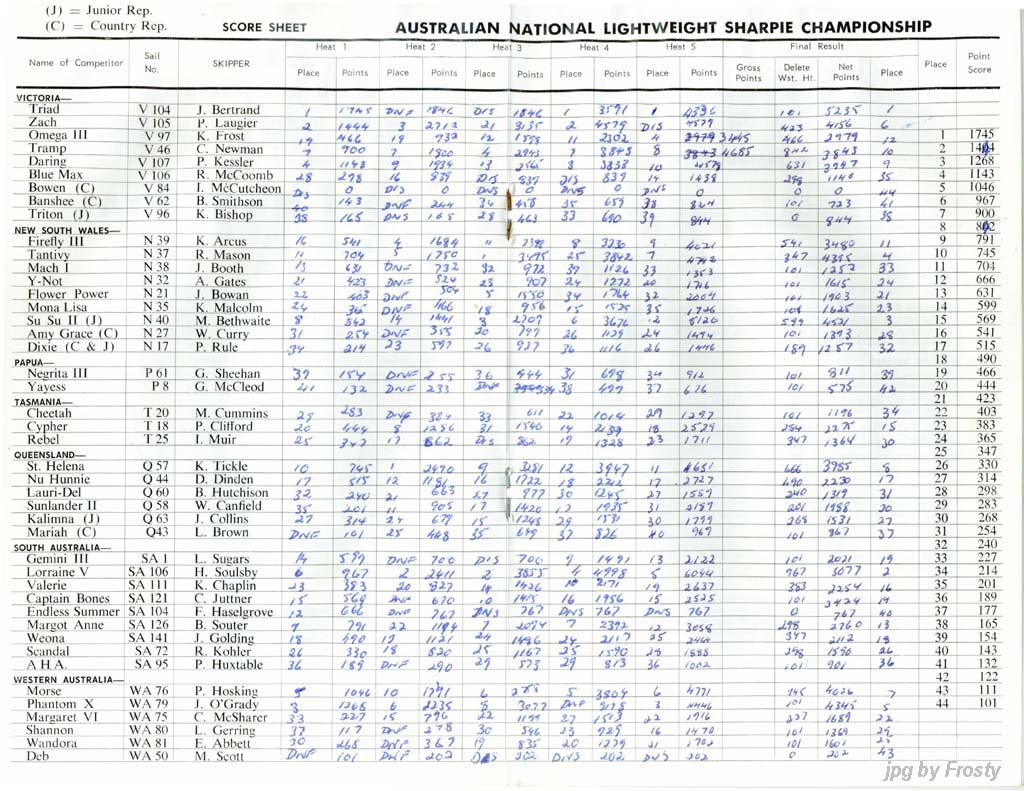 (J) = Junior Rep.
(C) = Country Rep. SCORE SHEET AUSTRALIAN NATIONAL LIGHTWEIGHT SHARPIE CHAMPIONSHIP
Heat 1 Heat 2 Heat 3 Heat 4 Heat 5 Final Result
Name of Competitor Sail No. SKIPPER Place Points Place Points Place Points Place Points Place Points Gross Points Delete Wst. Ht. Net Points Place Place Point Score
VICTORIA—
Triad V 104 J. Bertrand 1 1745 DNF 1846 DIS 1846 1 3591 1 5336 101 5235 1
Zach V 105 P. Laugier 2 1444 3 2712 21 3135 2 4579 DIS 4579 423 4156 6
Omega III V 97 K. Frost 19 466 19 932 12 1598 11 2302 4 3445 466 2979 12 1 1745
Tramp V 46 C. Newman 9 7 4 7 8 4685 842 3843 10 2
Daring V 107 P. Kessler 4 1143 9 1934 13 2565 3 3833 10 4578 631 3947 9 3 1268
Blue Max V 106 R. McCoomb 28 298 16 839 DIS 839 DIS 839 14 1438 298 1140 35 4 1143
Bowen (C) V 84 I. McCutcheon DIS 0 DIS 0 DNS 0 DNS 0 DNS 0 0 0 44 5 1046
Banshee (C) V 62 B. Smithson 40 143 DNF 244 34 458 35 659 38 824 101 723 41 6 967
Triton (J) V 96 K. Bishop 38 165 DNS 165 28 463 33 690 39 844 0 844 38 7 900
NEW SOUTH WALES— 8
Firefly III N 39 K. Arcus 16 541 4 1684 11 2388 8 3230 9 4021 541 3480 11 9 791
Tantivy N 37 R. Mason 11 704 5 1750 1 3495 25 3842 7 4742 347 4395 4 10 745
Mach I N 38 J. Booth 13 631 DNF 732 32 972 39 1126 33 1353 101 1252 33 11 704
Y-Not N 32 A. Gates 21 423 DNF 524 23 907 24 1272 20 1716 101 1615 24 12 666
Flower Power N 21 J. Bowan 22 403 DNF 504 5 1550 34 1764 32 2004 101 1903 21 13 631
Mona Lisa N 35 K. Malcolm 24 365 DNF 466 18 956 15 1525 35 1726 101 1625 23 14 599
Su Su II (J) N 40 M. Bethwaite 8 842 14 1441 3 2709 6 3676 2 5120 599 4521 3 15 569
Amy Grace (C) N 27 W. Curry 31 254 DNF 355 20 799 26 1129 24 1494 101 1393 28 16 541
Dixie (C & J) N 17 P. Rule 34 214 23 597 26 927 36 1116 26 1446 189 1257 32 17 515
PAPUA— 18 490
Negrita III P 61 G. Sheehan 39 154 DNF 255 36 444 31 698 34 912 101 811 39 19 466
Yayess P 8 G. McCleod 41 132 DNF 233 DNF 38 499 37 676 101 575 42 20 444
TASMANIA— 21 423
Cheetah T 20 M. Cummins 29 283 DNF 384 33 611 22 1014 29 1297 101 1196 34 22 403
Cypher T 18 P. Clifford 20 444 8 1286 31 1540 14 2139 18 2529 254 2275 15 23 383
Rebel T 25 I. Muir 25 347 17 862 DIS 862 19 1328 23 1711 347 1364 30 24 365
QUEENSLAND— 25 347
St. Helena Q 57 K. Tickle 10 745 1 2490 9 3281 12 3947 11 4651 666 3985 8 26 330
Nu Hunnie Q 44 D. Dinden 17 515 12 1181 16 1722 18 2212 17 2727 490 2230 17 27 314
Lauri-Del Q 60 B. Hutchison 32 240 21 663 27 977 30 1245 27 1559 240 1319 31 28 298
Sunlander II Q 58 W. Canfield 35 201 11 905 17 1420 17 1935 31 2189 201 1988 20 29 283
Kalimna (J) Q 63 J. Collins 27 314 24 679 15 1248 29 1531 30 1799 268 1531 27 30 268
Mariah (C) Q43 L. Brown DNF 101 25 448 35 649 37 826 40 969 101 867 37 31 254
SOUTH AUSTRALIA— 32 240
Gemini III SA 1 L. Sugars 14 599 DNF 700 DIS 700 9 1491 13 2122 101 2021 19 33 227
Lorraine V SA 106 H. Soulsby 6 967 2 2411 2 3855 4 4998 5 6044 967 5077 2 34 214
Valerie SA 111 K. Chaplin 23 383 20 827 14 1426 10 2171 19 2637 383 2254 16 35 201
Captain Bones SA 121 C. Juttner 15 569 DNF 670 10 1415 16 1956 15 2525 101 2424 14 36 189
Endless Summer SA 104 F. Haselgrove 12 666 DNF 767 DNS 767 DNS 767 DNS 767 0 767 40 37 177
Margot Anne SA 126 B. Souter 9 791 22 1194 7 2094 27 2392 12 3058 298 2760 13 38 165
Weona SA 141 J. Golding 18 490 13 1121 24 1486 24 2117 25 2464 347 2112 18 39 154
Scandal SA 72 R. Kohler 26 330 18 820 25 1167 25 1590 28 1888 298 1590 26 40 143
A H A. SA 95 P. Huxtable 36 189 DNF 290 29 573 29 813 36 1002 101 901 36 41 132
WESTERN AUSTRALIA— 42 122
Morse WA 76 P. Hosking 5 1046 10 1791 6 2758 5 3804 6 4771 745 4026 7 43 111
Phantom X WA 79 J. O'Grady 3 1268 6 2235 8 3077 DNF 3178 3 4446 101 4345 5 44 101
Margaret VI WA 75 C. McSharer 33 227 15 796 22 1199 27 1513 22 1916 227 1689 22
Shannon WA 80 L. Gerring 37 117 DNF 278 30 546 23 929 16 1470 101 1369 29
Wandora WA 81 E. Abbett 30 268 DNF 369 19 835 20 1279 21 1702 101 1601 25
Deb WA 50 M. Scott DNF 101 DNF 202 DNS 202 DNS 202 DNS 202 0 202 43
jpg by Frosty